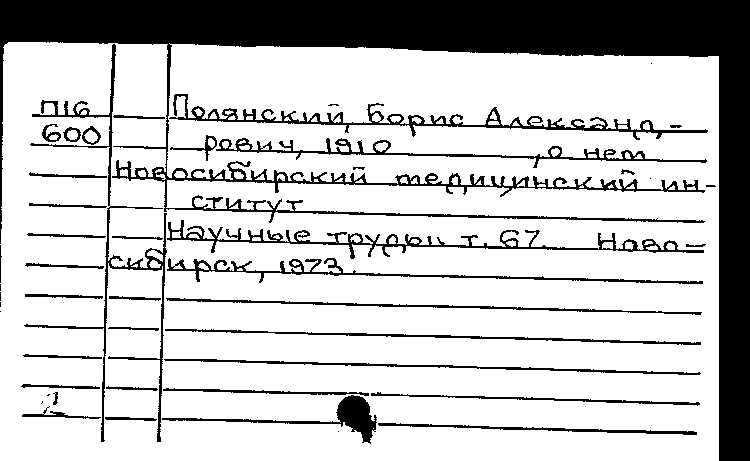 П16 Полянский, Борис Александ-
600 рович, 1910 , о нем
Новосибирский медицинский ин-
ститут
Научные труды.. т. 67. Ново-
сибирск, 1973.
2